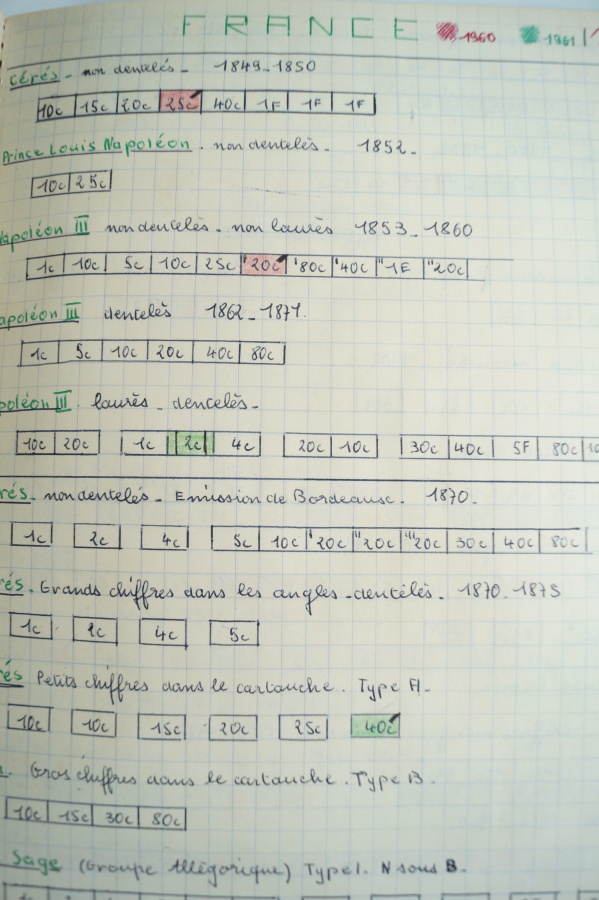 FRANCE 1960 1961
Cérès - non dentelés - 1849-1850
10c 15c 20c 25c 40c 1F 1F 1F
Prince Louis Napoléon . non dentelés - 1852 -
10c 25c
Napoléon III non dentelés - non laurés 1853 - 1860
1c 10c 5c 10c 25c '20c '80c '40c "1F "20c
apoléon III dentelés 1862 - 1871.
1c 5c 10c 20c 40c 80c
poléon III. laurés - dentelés -
10c 20c 1c 2c 4c 20c 10c 30c 40c 5F 80c 10
rés - non dentelés - Emission de Bordeaux . 1870 -
1c 2c 4c 5c 10c '20c "20c "'20c 30c 40c 80c
rés . Grands chiffres dans les angles - dentelés . 1870 - 1873
1c 2c 4c 5c
rés Petits chiffres dans le cartouche . Type A -
10c 10c 15c 20c 25c 40c
. Gros chiffres dans le cartouche . Type B .
10c 15c 30c 80c
Sage (Groupe Allégorique) Type I. N sous B .